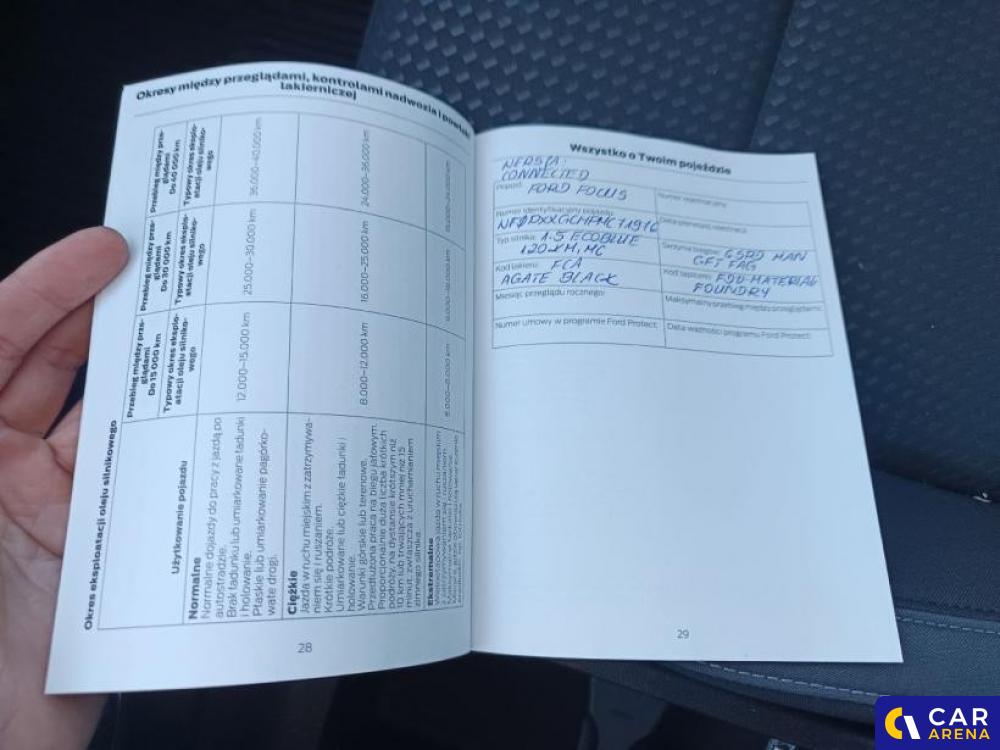 Okresy między przeglądami, kontrolami nadwozia i powłoki
lakierniczej
Okres eksploatacji oleju silnikowego
Użytkowanie pojazdu
Przebieg między prze-
glądami
Do 15 000 km
Przebieg między prze-
glądami
Do 30 000 km
Przebieg między prze-
glądami
Do 40 000 km
Typowy okres eksplo-
atacji oleju silniko-
wego
Typowy okres eksplo-
atacji oleju silniko-
wego
Typowy okres eksplo-
atacji oleju silniko-
wego
Normalne
Normalne dojazdy do pracy z jazdą po
autostradzie.
Brak ładunku lub umiarkowane ładunki
i holowanie.
Płaskie lub umiarkowanie pagórko-
wate drogi.
12.000–15.000 km
25.000–30.000 km
36.000–40.000 km
Ciężkie
Jazda w ruchu miejskim z zatrzymywa-
niem się i ruszaniem.
Krótkie podróże.
Umiarkowane lub ciężkie ładunki i
holowanie.
Warunki górskie lub terenowe.
Przedłużona praca na biegu jałowym.
Proporcjonalnie duża liczba krótkich
podróży, na dystansie krótszym niż
10 km lub trwających mniej niż 15
minut, zwłaszcza z uruchamianiem
zimnego silnika.
8.000–12.000 km
16.000–25.000 km
24.000–36.000 km
Ekstremalne
28
Wszystko o Twoim pojeździe
WERSJA:
CONNECTED
Pojazd: FORD FOCUS
Numer rejestracyjny:
Numer identyfikacyjny pojazdu:
Data pierwszej rejestracji:
Typ silnika: 1.5 ECOBLUE
120 KM, MC
Skrzynia biegów: 6SPD MAN
Kod lakieru: FCA
AGATE BLACK
Kod tapicerki: FDD-MATERIAŁ
FOUNDRY
Miesiąc przeglądu rocznego:
Maksymalny przebieg między przeglądami:
Numer umowy w programie Ford Protect:
Data ważności programu Ford Protect:
29
CAR
ARENA